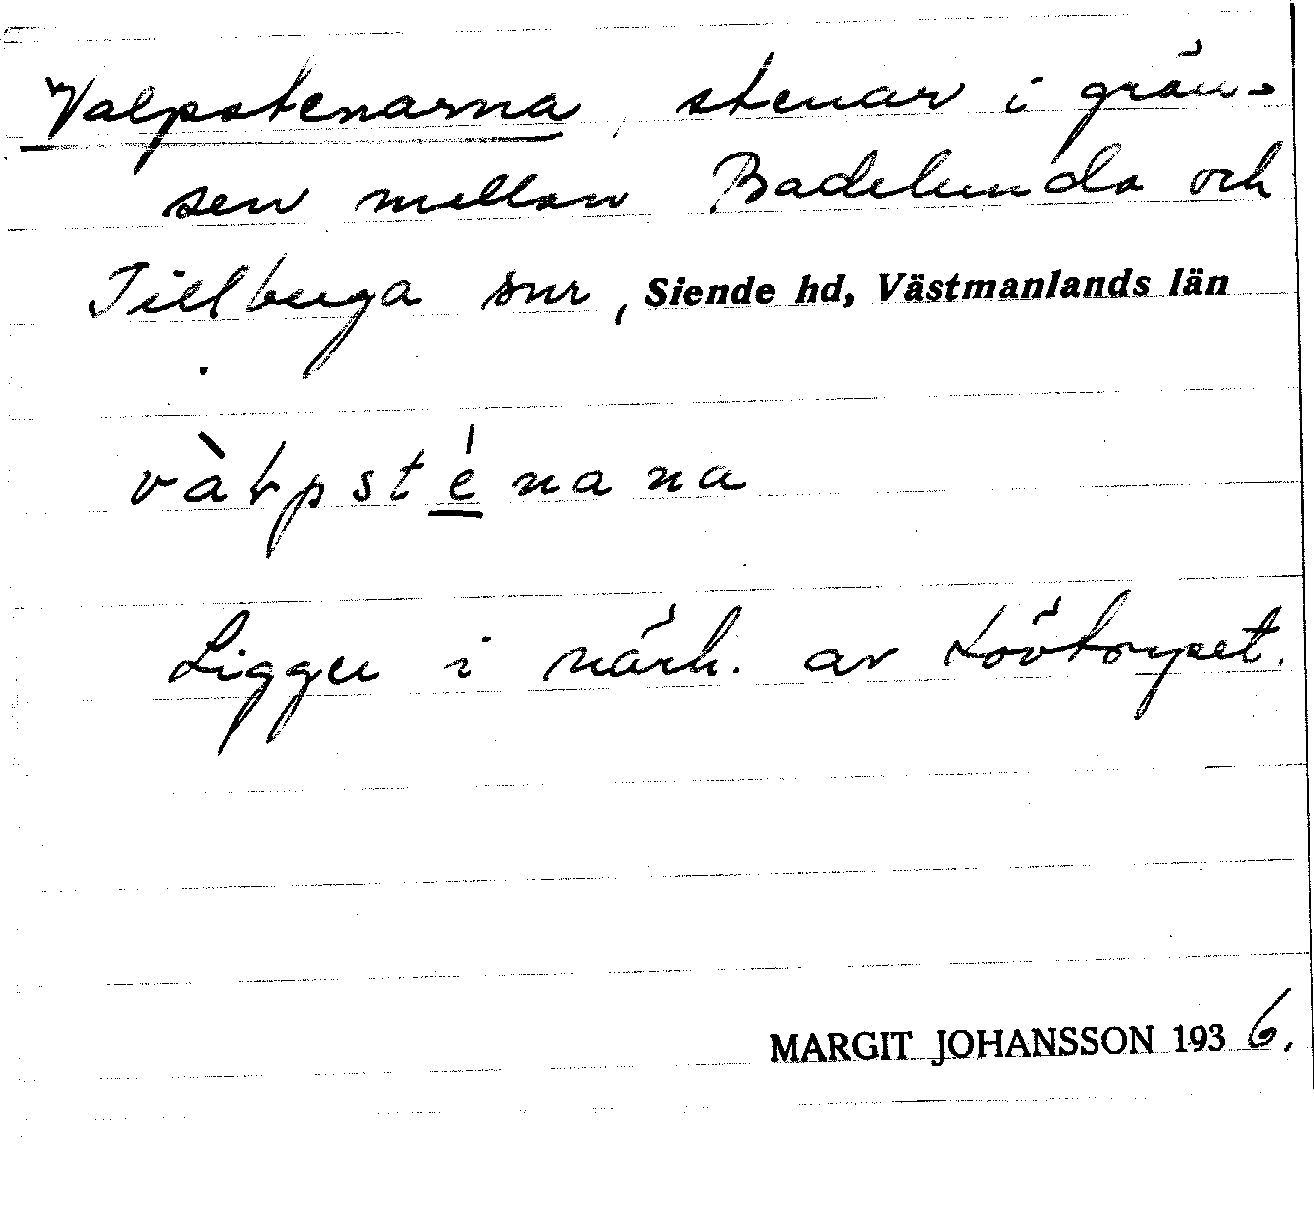 Valpstenarna, stenar i grän-
sen mellan Badelunda och
Tillberga snr, Siende hd, Västmanlands län
vàƚpsténana
Ligger i närh. av Lövtorpet.
MARGIT JOHANSSON 1936.